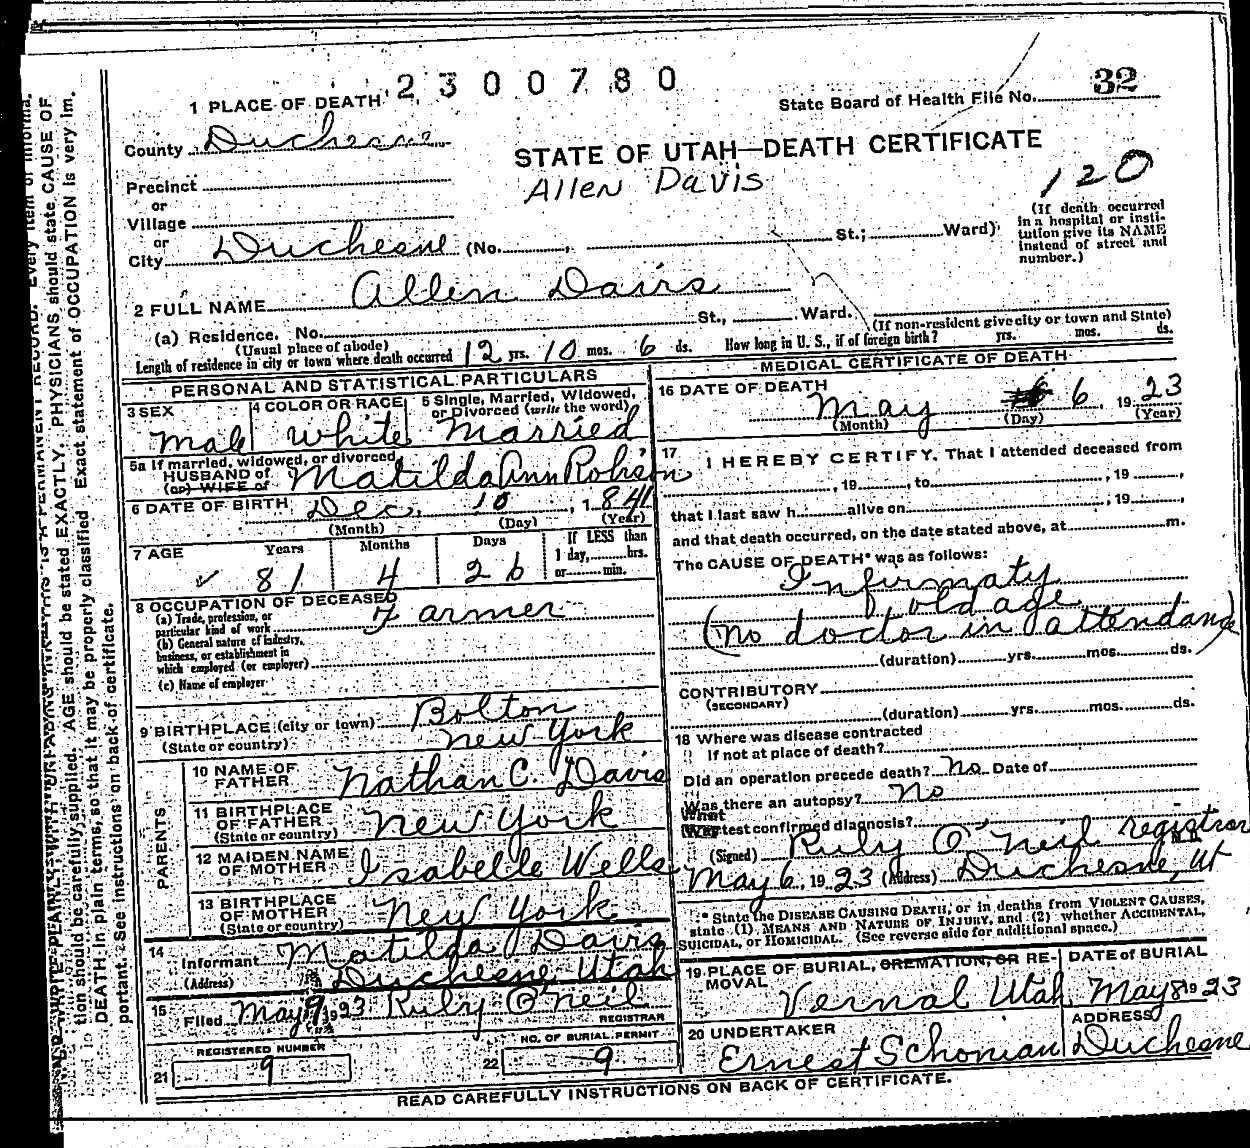 2300780
1 PLACE OF DEATH
State Board of Health File No. 32
County Duchesne
STATE OF UTAH—DEATH CERTIFICATE
Allen Davis
120
Precinct
or
Village
or
City Duchesne (No. St.; Ward)
(If death occurred
in a hospital or insti-
tution give its NAME
instead of street and
number.)
2 FULL NAME Allen Davis
(a) Residence. No. St., Ward.
(Usual place of abode)
(If non-resident give city or town and State)
Length of residence in city or town where death occurred 12 yrs. 10 mos. 6 ds. How long in U. S., if of foreign birth? yrs. mos. ds.
PERSONAL AND STATISTICAL PARTICULARS
3 SEX
Male
4 COLOR OR RACE
White
5 Single, Married, Widowed,
or Divorced (write the word)
Married
5a If married, widowed, or divorced
HUSBAND of
(or) WIFE of
Matilda Ann Robison
6 DATE OF BIRTH Dec. 10, 1841
(Month) (Day) (Year)
7 AGE
Years Months Days
81 4 26
If LESS than
1 day, hrs.
or min.
8 OCCUPATION OF DECEASED
(a) Trade, profession, or
particular kind of work Farmer
(b) General nature of industry,
business, or establishment in
which employed (or employer)
(c) Name of employer
9 BIRTHPLACE (city or town) Bolton
(State or country) New York
PARENTS
10 NAME OF
FATHER Nathan C. Davis
11 BIRTHPLACE
OF FATHER
(State or country) New York
12 MAIDEN NAME
OF MOTHER Isabelle Wells
13 BIRTHPLACE
OF MOTHER
(State or country) New York
14
Informant Matilda Davis
(Address) Duchesne Utah
15
Filed May 9 1923 Ruly O'Neil
REGISTRAR
REGISTERED NUMBER
21 9
NO. OF BURIAL PERMIT
22 9
MEDICAL CERTIFICATE OF DEATH
16 DATE OF DEATH
May 6, 1923
(Month) (Day) (Year)
17
I HEREBY CERTIFY, That I attended deceased from
, 19 , to , 19 ,
that I last saw h alive on , 19 ,
and that death occurred, on the date stated above, at m.
The CAUSE OF DEATH* was as follows:
Infirmaty
, old age
(no doctor in attendance)
(duration) yrs. mos. ds.
CONTRIBUTORY
(SECONDARY)
(duration) yrs. mos. ds.
18 Where was disease contracted
if not at place of death?
Did an operation precede death? No Date of
Was there an autopsy? No
What test confirmed diagnosis?
(Signed) Ruly O'Neil registrar
May 6, 1923 (Address) Duchesne, Ut
* State the DISEASE CAUSING DEATH, or in deaths from VIOLENT CAUSES,
state (1) MEANS AND NATURE OF INJURY, and (2) whether ACCIDENTAL,
SUICIDAL, or HOMICIDAL. (See reverse side for additional space.)
19 PLACE OF BURIAL, CREMATION, OR RE-
MOVAL
Vernal Utah
DATE of BURIAL
May 8 1923
20 UNDERTAKER
Ernest Schonian
ADDRESS
Duchesne
READ CAREFULLY INSTRUCTIONS ON BACK OF CERTIFICATE.
RECORD. Every item of informa-
tion should be carefully supplied. AGE should be stated EXACTLY. PHYSICIANS should state CAUSE OF
DEATH in plain terms, so that it may be properly classified. Exact statement of OCCUPATION is very im-
portant. See instructions on back of certificate.